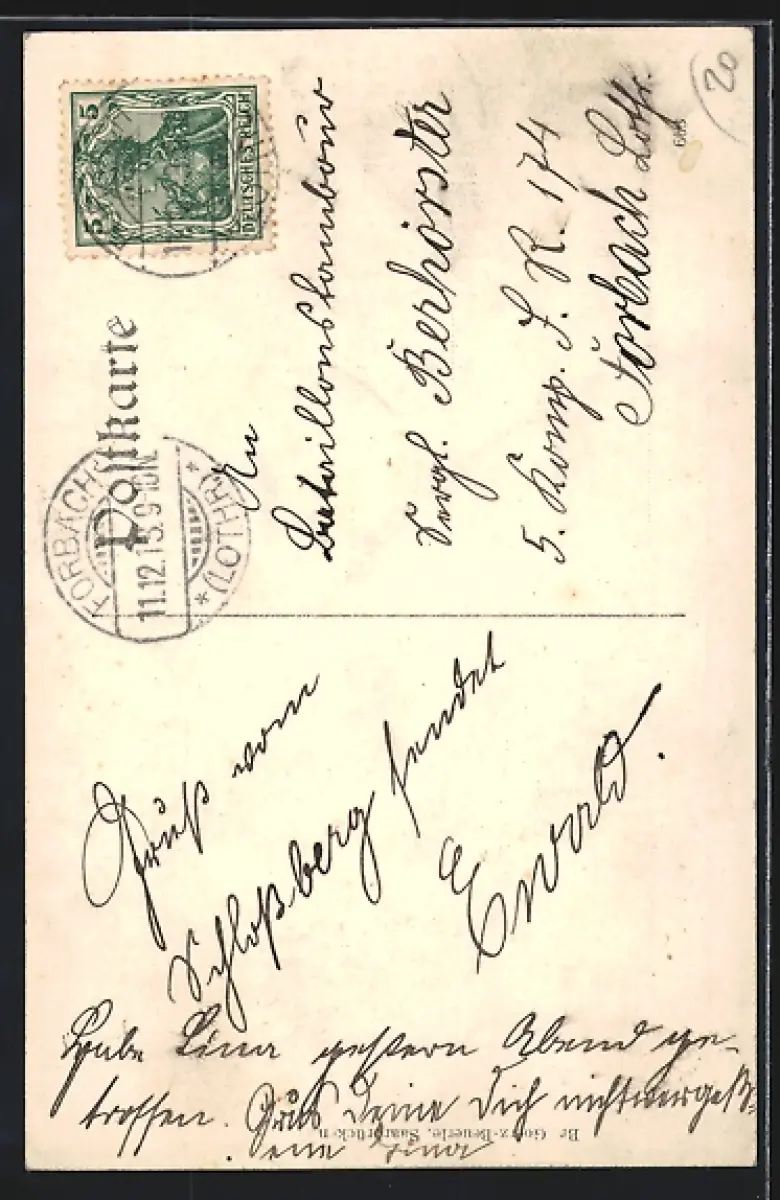 20
5
5
DEUTSCHES REICH
Postkarte
FORBACH
11.12.13.9-10N.
* (LOTHR.) *
An
Bataillonstambour
Sergt. Berhorster
5. Komp. J. R. 174
Forbach Lothr.
Gruß vom
Schloßberg sendet
Ewald.
Habe Lina gestern Abend ge-
troffen. Gruß Deine Dich nichtvergeß-
ene Lina
Br. Goetz-Beuerle, Saarbrücken